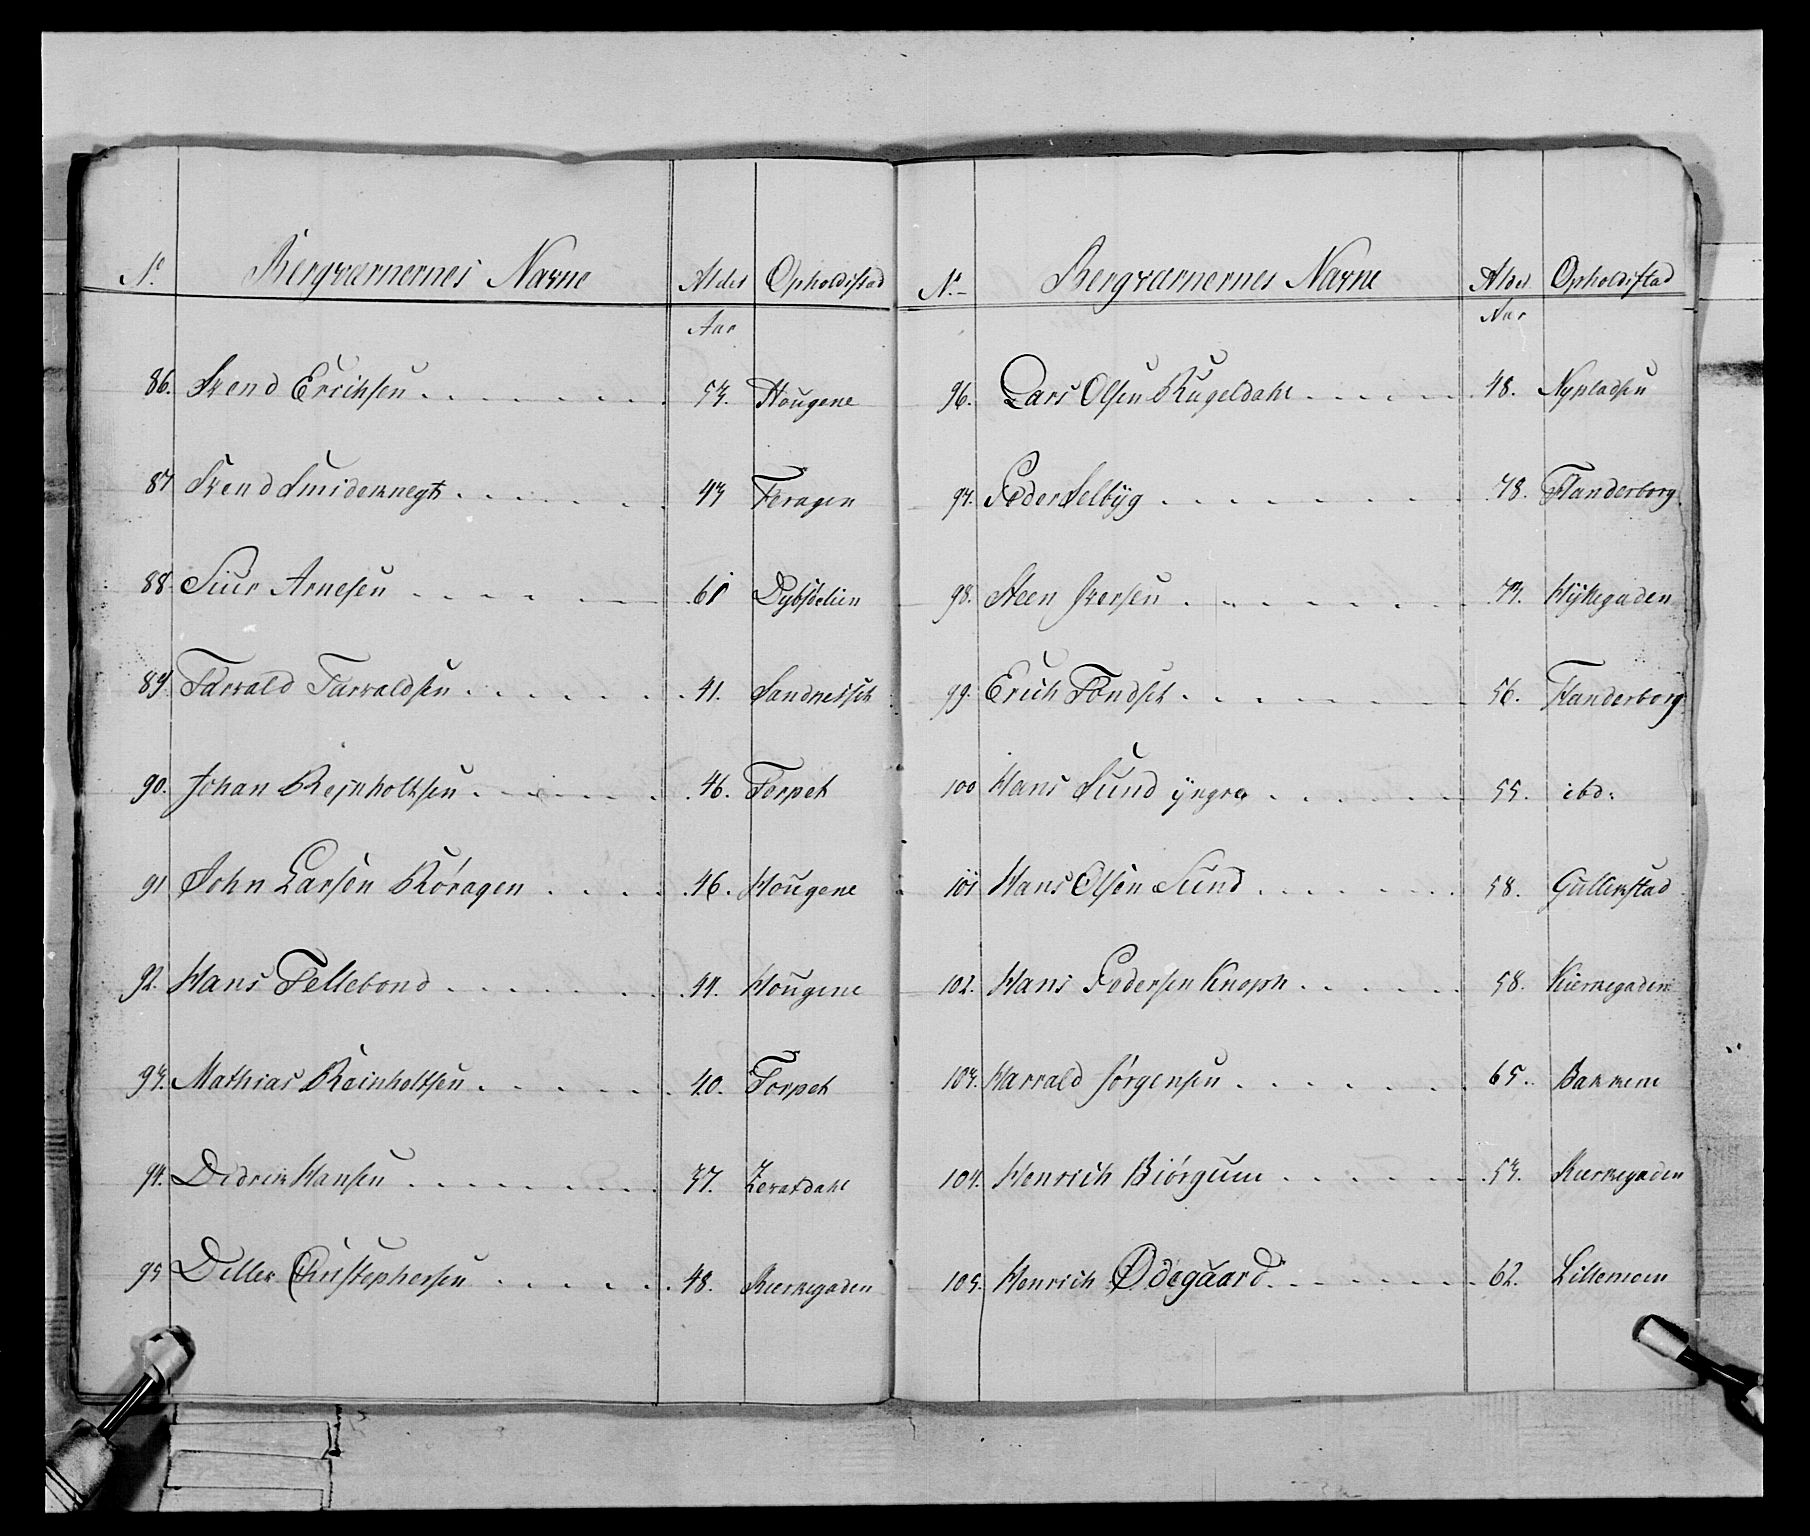 No. Bergværnernes Navne Alder Opholdsstad
Aar
86. Svend Erichsen 53. Hougene
87 Svend Smideknegt 43 Feragen
88. Siur Arnesen 61 Dybsøelien
89. Tarvald Tarvaldsen 41. Sandnessæt
90. Johan Rejnholtsen 46. Torpet
91 John Larsen Røragen 46. Hougene
92. Hans Tellebond 44. Hougene
93. Mathias Reinholtsen 40. Torpet
94. Didrik Hansen 37. Leratdahl
95 Ditlev Christophersen 48. Kierkegaden
No. Bergværnernes Navne Alder Opholdsstad
Aar
96. Lars Olsen Kugeldahl 48. Nypladsen
97. Peder Selbÿg 48. Flanderborg
98. Steen Iversen 43. Hÿttegaden
99. Erich Tøndset 56. Flanderborg
100 Hans Sund ÿngre 55. ibd:
101 Hans Olsen Sund 58. Gullikstad
102. Hans Pedersen Knoph 58. Kierkegaden
103. Harrald Jørgensen 65. Bakkene
104. Henrich Biørgum 53. Kierkegaden
105. Henrich Ødegaard 62. Lillemoen